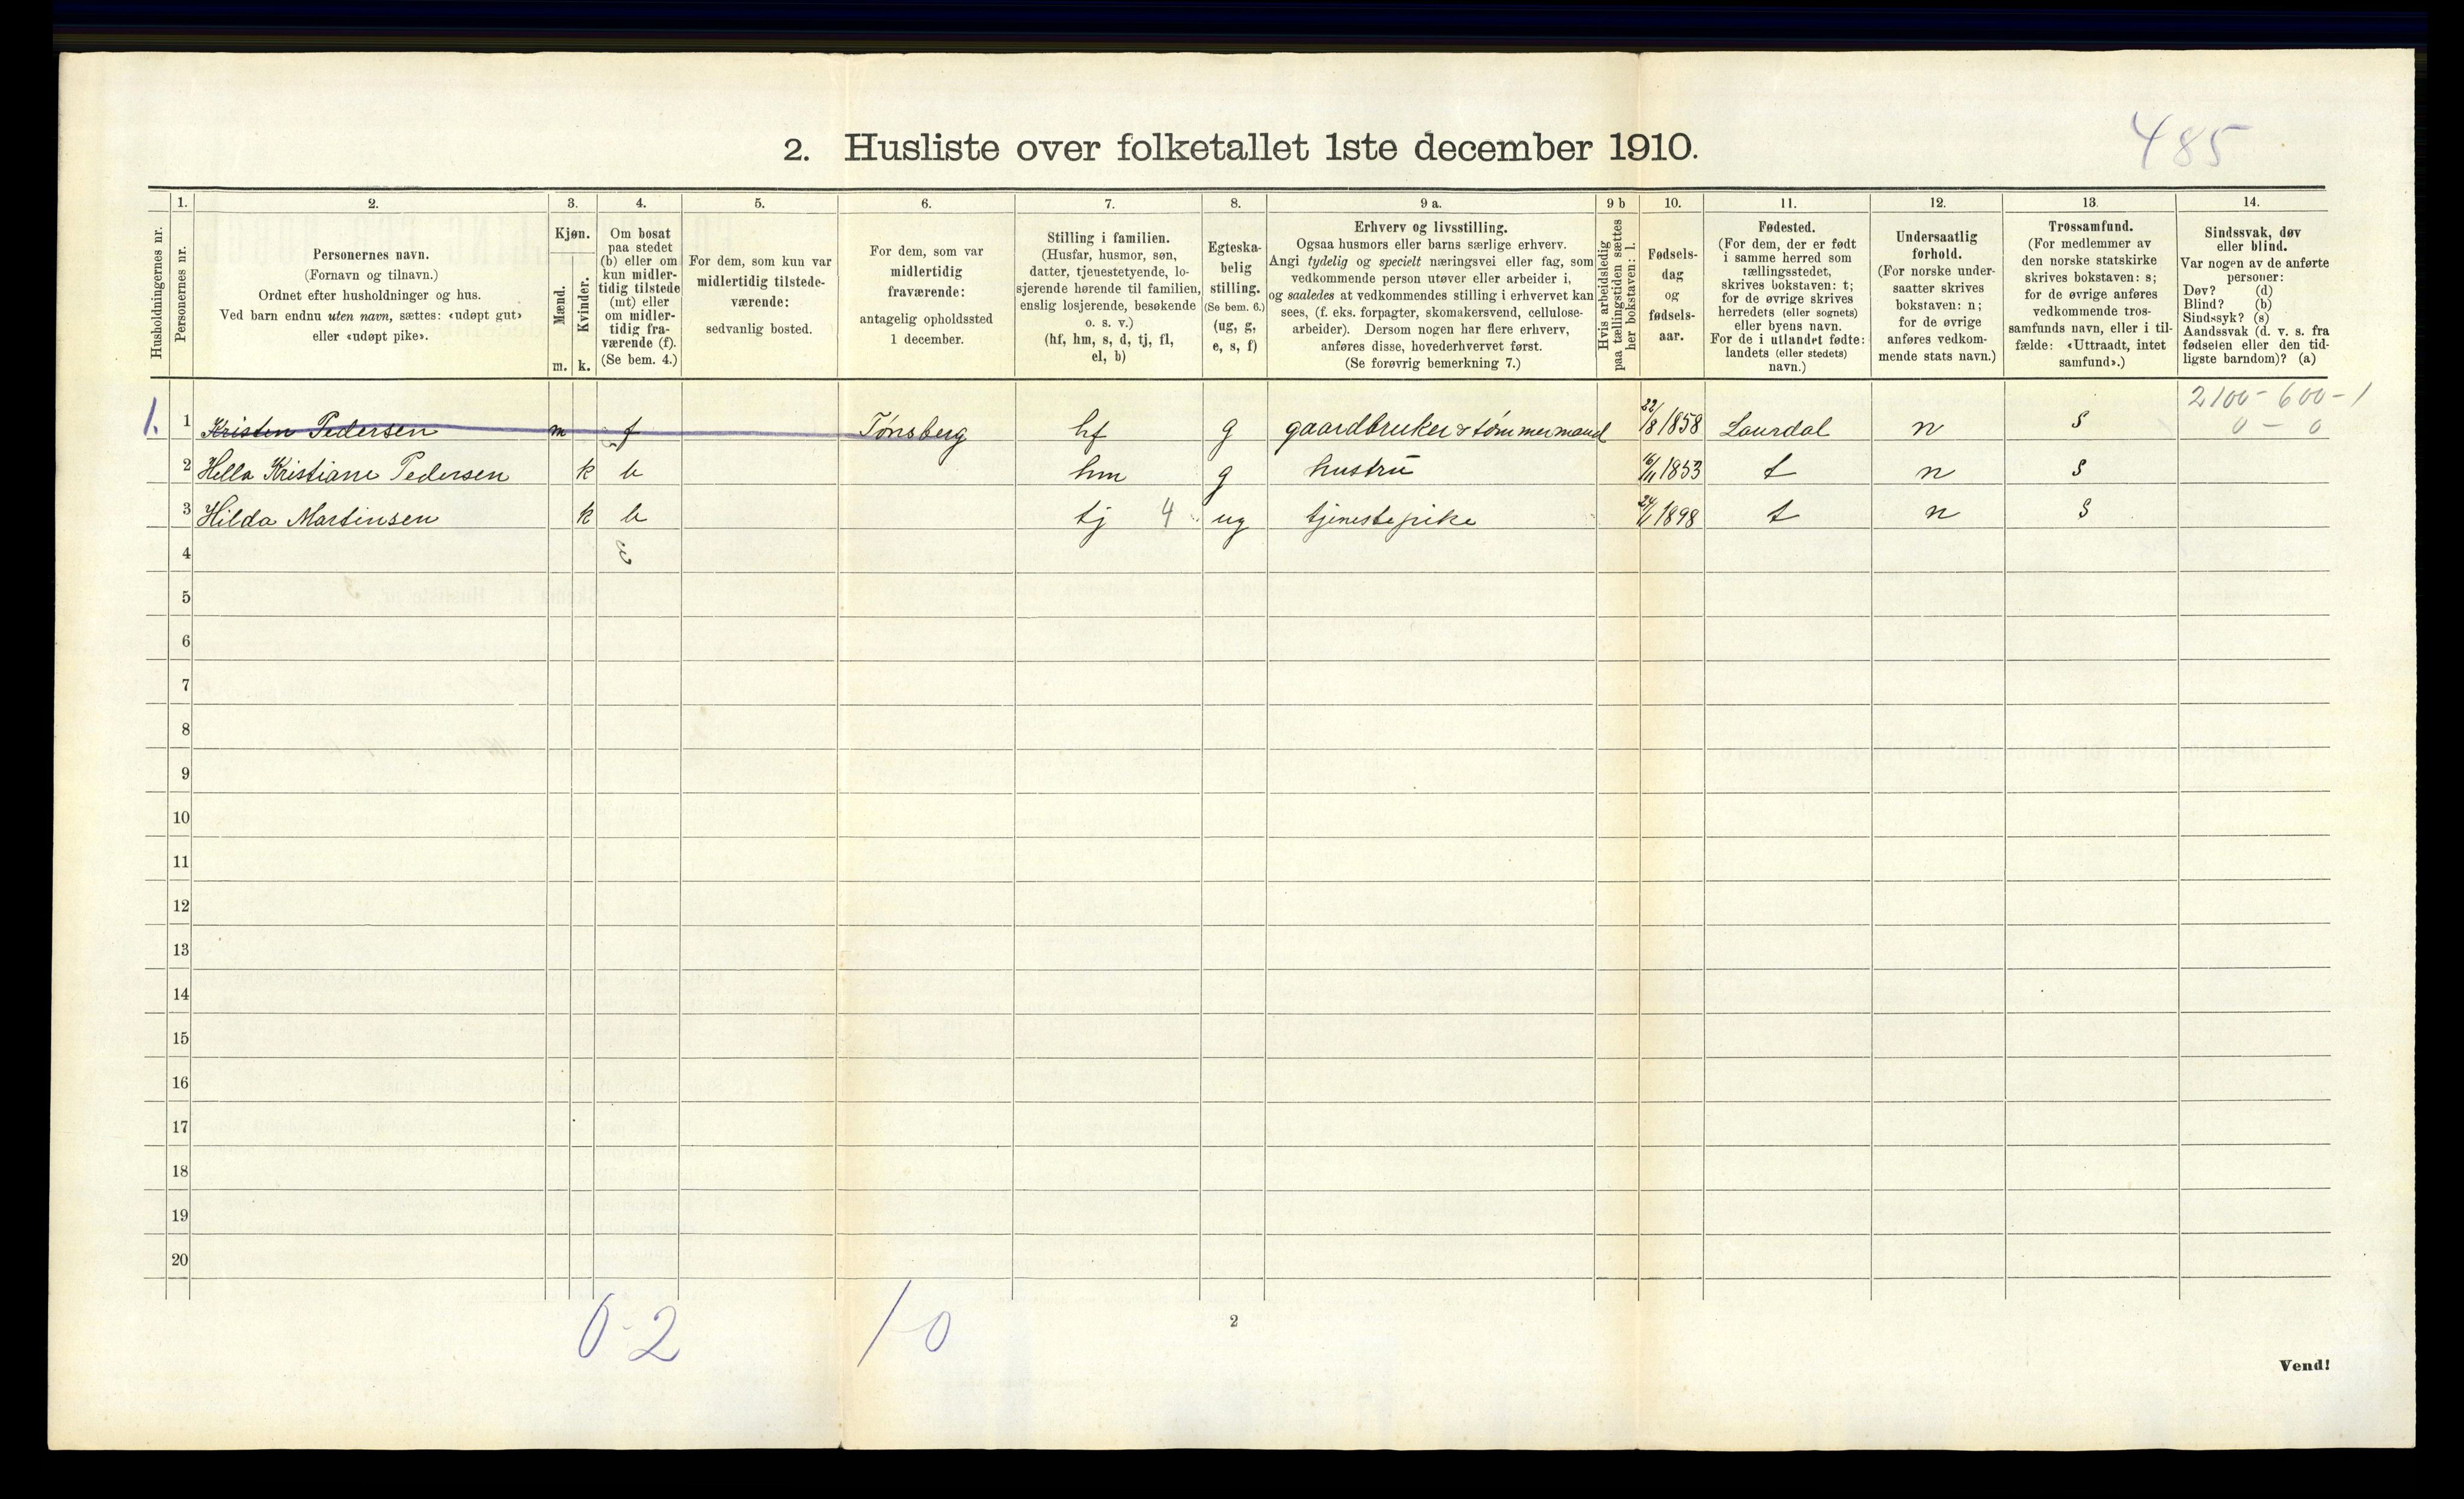 485
2. Husliste over folketallet 1ste december 1910.
Husholdningernes nr.
1.
Personernes nr.
2.
Personernes navn.
(Fornavn og tilnavn.)
Ordnet efter husholdninger og hus.
Ved barn endnu uten navn, sættes: «udøpt gut»
eller «udøpt pike».
3.
Kjøn.
Mænd.
Kvinder.
m. k.
4.
Om bosat
paa stedet
(b) eller om
kun midler-
tidig tilstede
(mt) eller
om midler-
tidig fra-
værende (f).
(Se bem. 4.)
5.
For dem, som kun var
midlertidig tilstede-
værende:
sedvanlig bosted.
6.
For dem, som var
midlertidig
fraværende:
antagelig opholdssted
1 december.
7.
Stilling i familien.
(Husfar, husmor, søn,
datter, tjenestetyende, lo-
sjerende hørende til familien,
enslig losjerende, besøkende
o. s. v.)
(hf, hm, s, d, tj, fl,
el, b)
8.
Egteska-
belig
stilling.
(Se bem. 6.)
(ug, g,
e, s, f)
9 a.
Erhverv og livsstilling.
Ogsaa husmors eller barns særlige erhverv.
Angi tydelig og specielt næringsvei eller fag, som
vedkommende person utøver eller arbeider i,
og saaledes at vedkommendes stilling i erhvervet kan
sees, (f. eks. forpagter, skomakersvend, cellulose-
arbeider). Dersom nogen har flere erhverv,
anføres disse, hovederhvervet først.
(Se forøvrig bemerkning 7.)
9 b
Hvis arbeidsledig
paa tællingstiden sættes
her bokstaven: l.
10.
Fødsels-
dag
og
fødsels-
aar.
11.
Fødested.
(For dem, der er født
i samme herred som
tællingsstedet,
skrives bokstaven: t;
for de øvrige skrives
herredets (eller sognets)
eller byens navn.
For de i utlandet fødte:
landets (eller stedets)
navn.)
12.
Undersaatlig
forhold.
(For norske under-
saatter skrives
bokstaven: n;
for de øvrige
anføres vedkom-
mende stats navn.)
13.
Trossamfund.
(For medlemmer av
den norske statskirke
skrives bokstaven: s;
for de øvrige anføres
vedkommende tros-
samfunds navn, eller i til-
fælde: «Uttraadt, intet
samfund».)
14.
Sindssvak, døv
eller blind.
Var nogen av de anførte
personer:
Døv? (d)
Blind? (b)
Sindssyk? (s)
Aandssvak (d. v. s. fra
fødselen eller den tid-
ligste barndom)? (a)
2100 - 600 - 1
0 - 0
1. 1 Kristen Pedersen m f Tønsberg hf g gaardbruker & tømmermand 22/8 1858 Laurdal n s
2 Hella Kristiane Pedersen k b hm g hustru 16/11 1853 t n s
3 Hilda Martinsen k b tj 4 ug tjenestepike 24/1 1898 t n s
4
5
6
7
8
9
10
11
12
13
14
15
16
17
18
19
20
0-2 1-0
2
Vend!